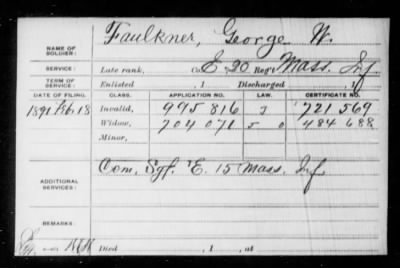 NAME OF SOLDIER: Faulkner, George W.
SERVICE: Late rank, Co. E, 20 Reg't Mass. Inf
TERM OF SERVICE: Enlisted , 1 Discharged , 1
DATE OF FILING. CLASS. APPLICATION NO. LAW. CERTIFICATE NO.
1891 Feb. 18 Invalid, 995 816 J 721 569
Widow, 704 071 5 0 484 688
Minor,
ADDITIONAL SERVICES: Com. Sgt. E. 15 Mass. Inf
REMARKS:
Died , 1 , at